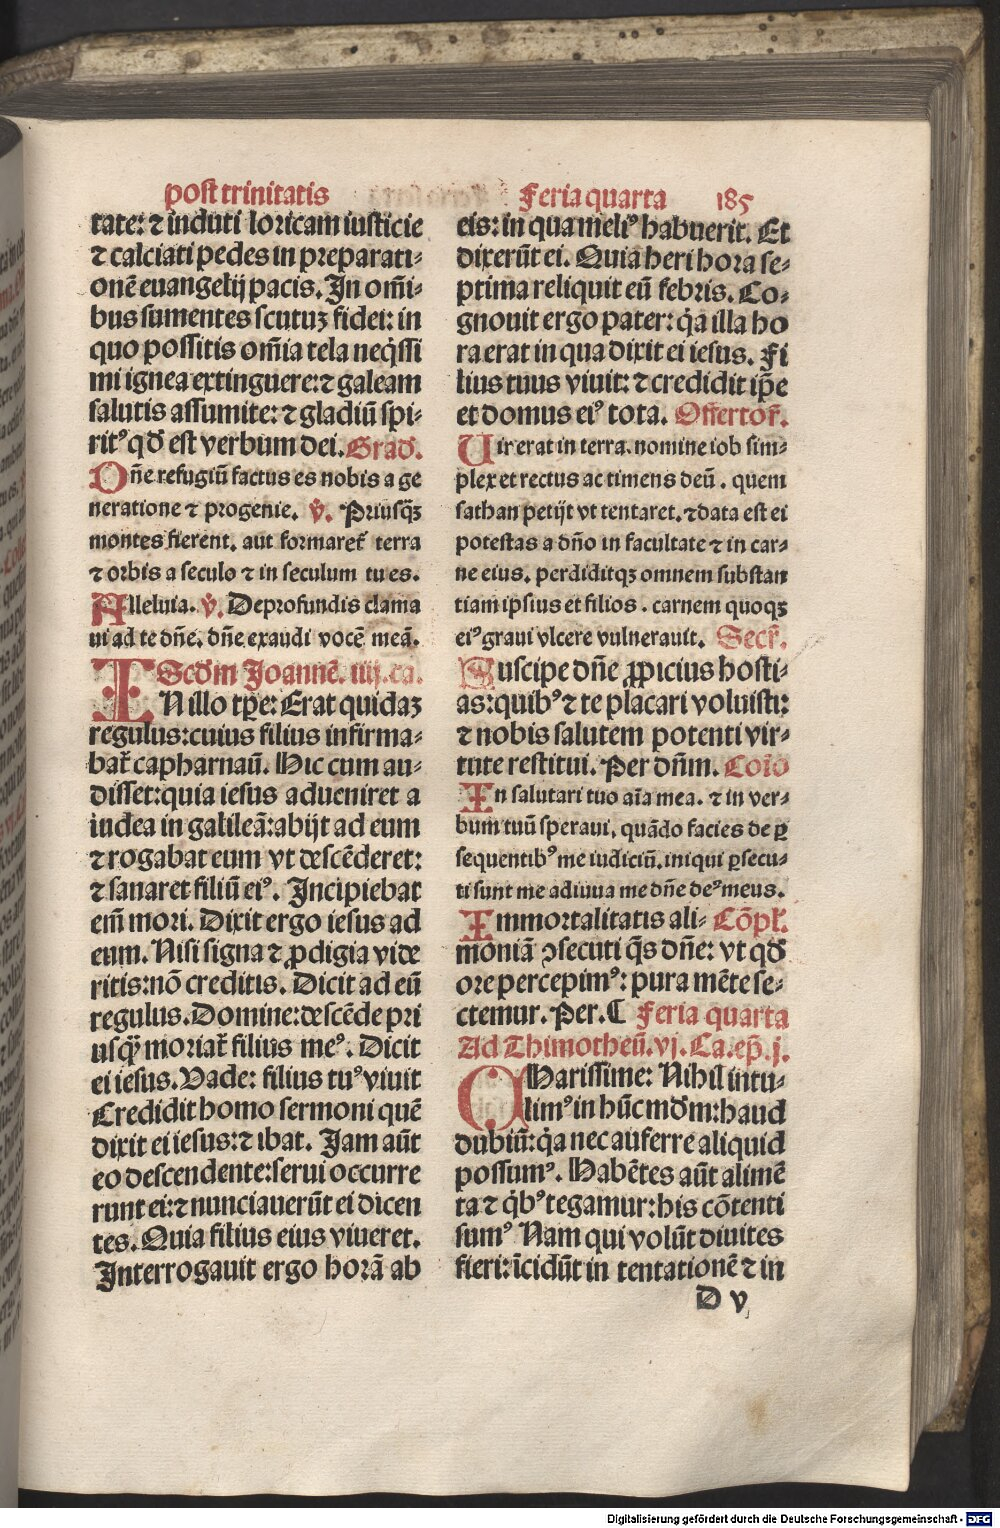 post trinitatis
Feria quarta 185
tate: ⁊ induti loricam iusticie
⁊ calciati pedes in preparati-
onē euangelij pacis. In om̄i-
bus sumentes scutuꝫ fidei: in
quo possitis om̄ia tela neq̇ssi
mi ignea extinguere: ⁊ galeam
salutis assumite: ⁊ gladiū spi-
ritꝰ qđ est verbum dei. Grad̄.
Dn̄e refugiū factus es nobis a ge
neratione ⁊ progenie. ℣. Priusq̄ꝫ
montes fierent. aut formaret̄ terra
⁊ orbis a seculo ⁊ in seculum tu es.
Alleluia. ℣. De profundis clama
ui ad te dn̄e. dn̄e exaudi vocē meā.
Scđm Joannē. iiij. ca.
IN illo tp̄e: Erat quidaꝫ
regulus: cuius filius infirma-
bat̄ capharnaū. Hic cum au-
disset: quia iesus adueniret a
iudea in galileā: abijt ad eum
⁊ rogabat eum vt descēderet:
⁊ sanaret filiū eiꝰ. Incipiebat
em̄ mori. Dixit ergo iesus ad
eum. Nisi signa ⁊ ꝓdigia vide
ritis: nō creditis. Dicit ad eū
regulus. Domine: descēde pri
usq̄ꝫ moriat̄ filius meꝰ. Dicit
ei iesus. Vade: filius tuꝰ viuit
Credidit homo sermoni quē
dixit ei iesus: ⁊ ibat. Jam aūt
eo descendente: serui occurre
runt ei: ⁊ nunciauerūt ei dicen
tes. Quia filius eius viueret.
Interrogauit ergo horā ab
eis: in qua meliꝰ habuerit. Et
dixerūt ei. Quia heri hora se-
ptima reliquit eū febris. Co-
gnouit ergo pater: q̇a illa ho
ra erat in qua dixit ei iesus. Fi
lius tuus viuit: ⁊ credidit ip̄e
et domus eiꝰ tota. Offertor̄.
Uir erat in terra. nomine iob sim-
plex et rectus ac timens deū. quem
sathan petijt vt tentaret. ⁊ data est ei
potestas a dn̄o in facultate ⁊ in car-
ne eius. perdiditqꝫ omnem substan
tiam ipsius et filios. carnem quoqꝫ
eiꝰ graui vlcere vulnerauit. Secr̄.
Suscipe dn̄e ꝓpicius hosti-
as: quibꝰ ⁊ te placari voluisti:
⁊ nobis salutem potenti vir-
tute restitui. Per dn̄m. Coīo
In salutari tuo aīa mea. ⁊ in ver-
bum tuū speraui, quādo facies de ꝑ
sequentibꝰ me iudiciū. iniqui ꝑsecu-
ti sunt me adiuua me dn̄e deꝰ meus.
Immortalitatis ali- Cōpl̄.
moniā ꝯsecuti q̄s dn̄e: vt qđ
ore percepimꝰ: pura mēte se-
ctemur. Per. C Feria quarta
Ad Thimotheū. vj. Ca. ep̄. j.
CHarissime: Nihil intu-
limꝰ in hūc mđm: haud
dubiū: q̇a nec auferre aliquid
possumꝰ. Habētes aūt alimē
ta ⁊ q̇bꝰ tegamur: his cōtenti
sumꝰ Nam qui volūt diuites
fieri: īcidūt in tentationē ⁊ in
D v
Digitalisierung gefördert durch die Deutsche Forschungsgemeinschaft - DFG